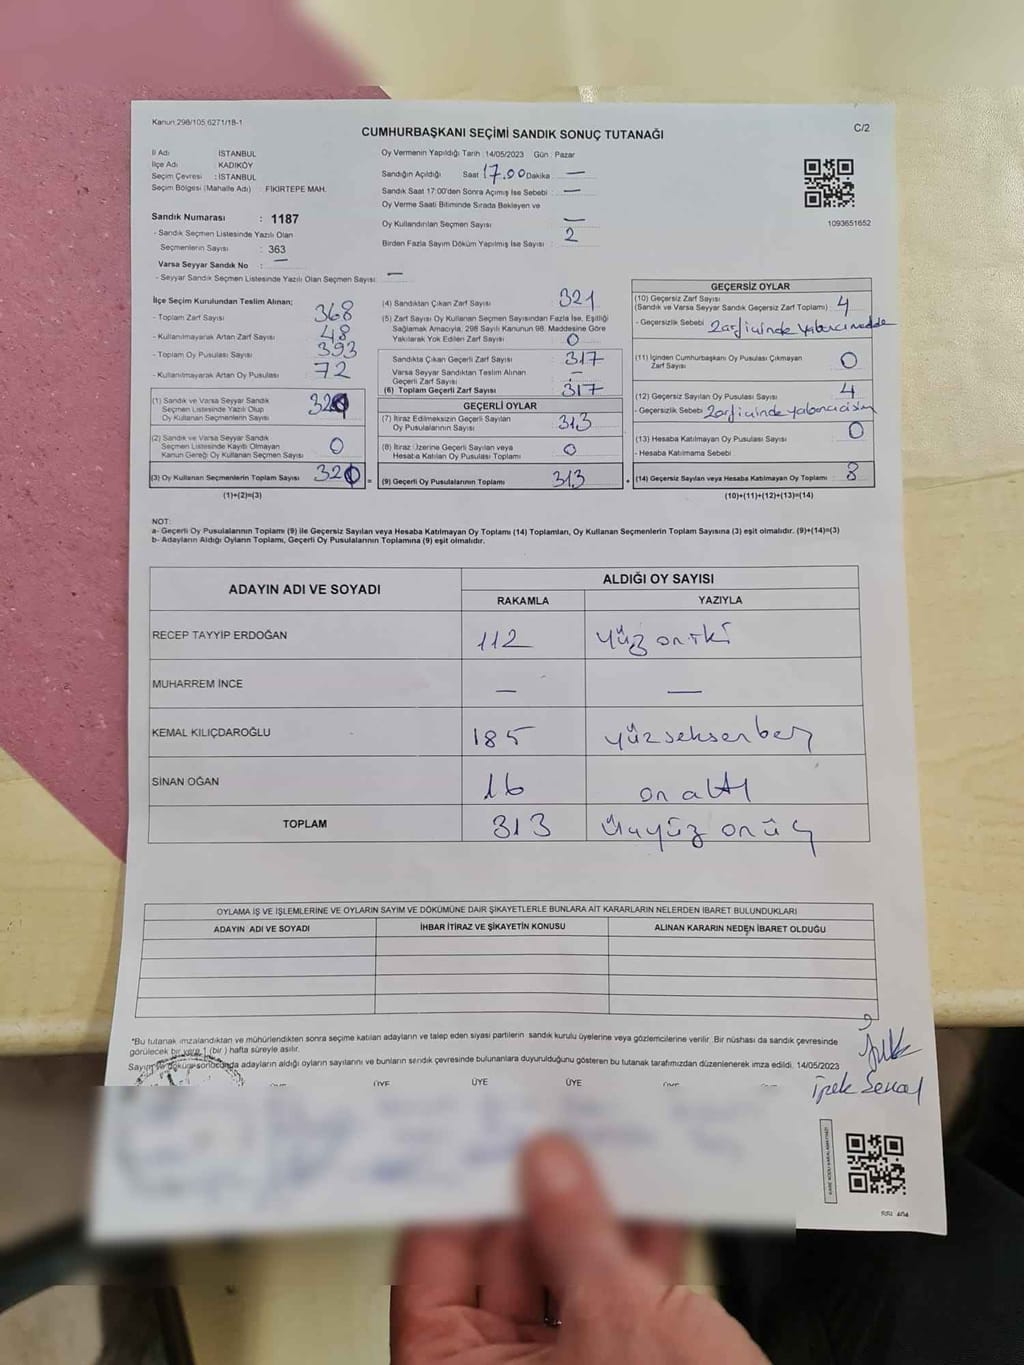 Kanun:298/105 6271/18-1
C/2
CUMHURBAŞKANI SEÇİMİ SANDIK SONUÇ TUTANAĞI
İl Adı : İSTANBUL
İlçe Adı : KADIKÖY
Seçim Çevresi : İSTANBUL
Seçim Bölgesi (Mahalle Adı) : FİKİRTEPE MAH.
Sandık Numarası : 1187
- Sandık Seçmen Listesinde Yazılı Olan
Seçmenlerin Sayısı : 363
Varsa Seyyar Sandık No : —
- Seyyar Sandık Seçmen Listesinde Yazılı Olan Seçmen Sayısı : —
Oy Vermenin Yapıldığı Tarih :14/05/2023 Gün : Pazar
Sandığın Açıldığı Saat 17.00 Dakika —
Sandık Saat 17:00'den Sonra Açılmış İse Sebebi : —
Oy Verme Saati Bitiminde Sırada Bekleyen ve
Oy Kullandırılan Seçmen Sayısı : —
Birden Fazla Sayım Döküm Yapılmış İse Sayısı : 2
1093651652
İlçe Seçim Kurulundan Teslim Alınan;
- Toplam Zarf Sayısı 368
- Kullanılmayarak Artan Zarf Sayısı : 48
- Toplam Oy Pusulası Sayısı 393
- Kullanılmayarak Artan Oy Pusulası : 72
(1) Sandık ve Varsa Seyyar Sandık
Seçmen Listesinde Yazılı Olup
Oy Kullanan Seçmenlerin Sayısı
(2) Sandık ve Varsa Seyyar Sandık
Seçmen Listesinde Kayıtlı Olmayan
Kanun Gereği Oy Kullanan Seçmen Sayısı 0
(3) Oy Kullanan Seçmenlerin Toplam Sayısı
(1)+(2)=(3)
(4) Sandıktan Çıkan Zarf Sayısı 321
(5) Zarf Sayısı Oy Kullanan Seçmen Sayısından Fazla İse, Eşitliği
Sağlamak Amacıyla, 298 Sayılı Kanunun 98. Maddesine Göre
Yakılarak Yok Edilen Zarf Sayısı 0
Sandıkta Çıkan Geçerli Zarf Sayısı : 317
Varsa Seyyar Sandıktan Teslim Alınan
Geçerli Zarf Sayısı : —
(6) Toplam Geçerli Zarf Sayısı : 317
GEÇERLİ OYLAR
(7) İtiraz Edilmeksizin Geçerli Sayılan
Oy Pusulalarının Sayısı : 313
(8) İtiraz Üzerine Geçerli Sayılan veya
Hesaba Katılan Oy Pusulası Toplamı : 0
= (9) Geçerli Oy Pusulalarının Toplamı : 313
GEÇERSİZ OYLAR
(10) Geçersiz Zarf Sayısı
(Sandık ve Varsa Seyyar Sandık Geçersiz Zarf Toplamı) : 4
- Geçersizlik Sebebi : zarf içinde yabancı madde
(11) İçinden Cumhurbaşkanı Oy Pusulası Çıkmayan
Zarf Sayısı : 0
(12) Geçersiz Sayılan Oy Pusulası Sayısı : 4
- Geçersizlik Sebebi : zarf içinde yabancı
(13) Hesaba Katılmayan Oy Pusulası Sayısı : 0
- Hesaba Katılmama Sebebi
+ (14) Geçersiz Sayılan veya Hesaba Katılmayan Oy Toplamı : 8
(10)+(11)+(12)+(13)=(14)
NOT:
a- Geçerli Oy Pusulalarının Toplamı (9) ile Geçersiz Sayılan veya Hesaba Katılmayan Oy Toplamı (14) Toplamları, Oy Kullanan Seçmenlerin Toplam Sayısına (3) eşit olmalıdır. (9)+(14)=(3)
b- Adayların Aldığı Oyların Toplamı, Geçerli Oy Pusulalarının Toplamına (9) eşit olmalıdır.
ADAYIN ADI VE SOYADI ALDIĞI OY SAYISI
RAKAMLA YAZIYLA
RECEP TAYYİP ERDOĞAN 112 yüz oniki
MUHARREM İNCE — —
KEMAL KILIÇDAROĞLU 185 yüzseksenbeş
SİNAN OĞAN 16 on altı
TOPLAM 313 üçyüz onüç
OYLAMA İŞ VE İŞLEMLERİNE VE OYLARIN SAYIM VE DÖKÜMÜNE DAİR ŞİKAYETLERLE BUNLARA AİT KARARLARIN NELERDEN İBARET BULUNDUKLARI
ADAYIN ADI VE SOYADI İHBAR İTİRAZ VE ŞİKAYETİN KONUSU ALINAN KARARIN NEDEN İBARET OLDUĞU
*Bu tutanak imzalandıktan ve mühürlendikten sonra seçime katılan adayların ve talep eden siyasi partilerin sandık kurulu üyelerine veya gözlemcilerine verilir. Bir nüshası da sandık çevresinde
görülecek bir yere 1 (bir ) hafta süreyle asılır.
Sayım ve döküm sonucunda adayların aldığı oyların sayılarını ve bunların sandık çevresinde bulunanlara duyurulduğunu gösteren bu tutanak tarafımızdan düzenlenerek imza edildi. 14/05/2023
ÜYE ÜYE ÜYE ÜYE
İpek Şenal